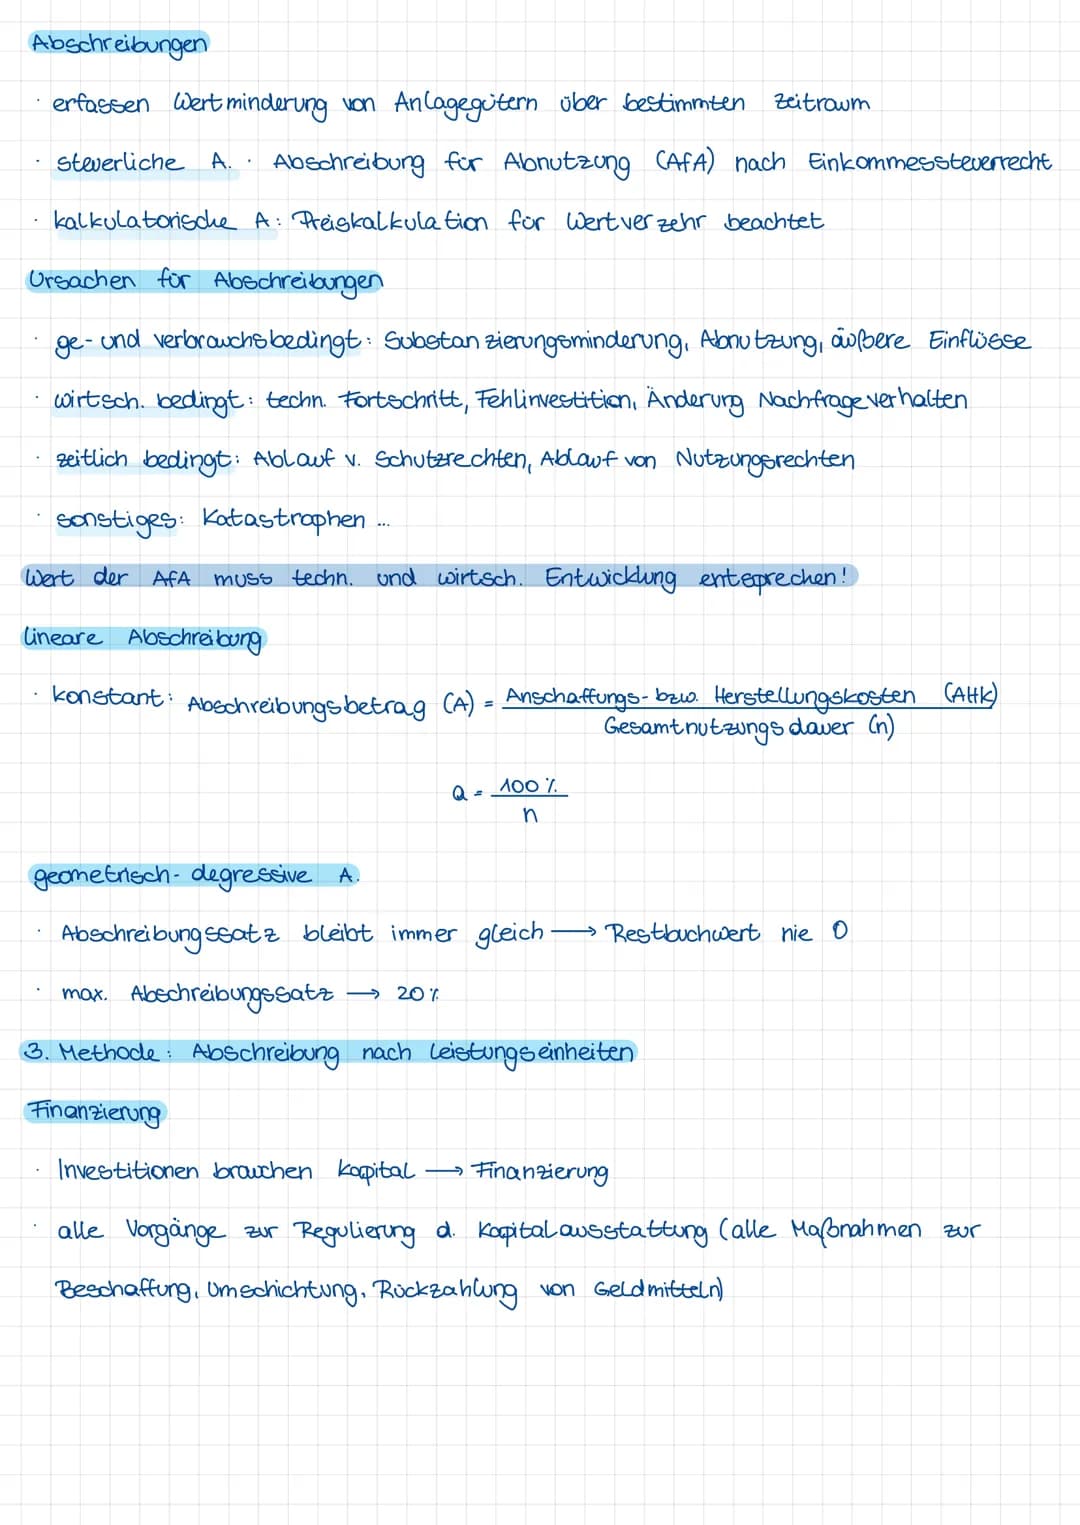 Abschreibungen
· erfassen Wertminderung von Anlagegütern über bestimmten Zeitraum
· steuerliche A. · Abschreibung für Abnutzung (AfA) nach Einkommessteuerrecht
· kalkulatorische A: Preiskalkulation für Wertverzehr beachtet
Ursachen für Abschreibungen
· ge- und verbrauchsbedingt: Substanzierungsminderung, Abnutzung, äußere Einflüsse
· wirtsch. bedingt: techn. Fortschritt, Fehlinvestition, Änderung Nachfrageverhalten
· zeitlich bedingt: Ablauf v. Schutzrechten, Ablauf von Nutzungsrechten
· sonstiges: Katastrophen ...
Wert der AfA muss techn. und wirtsch. Entwicklung entsprechen!
lineare Abschreibung
· konstant: Abschreibungsbetrag (A) = Anschaffungs- bzw. Herstellungskosten (AHK)
Gesamtnutzungsdauer (n)
Q = 100 %
n
geometrisch-degressive A.
· Abschreibungssatz bleibt immer gleich → Restbuchwert nie 0
· max. Abschreibungssatz → 20%
3. Methode: Abschreibung nach Leistungseinheiten
Finanzierung
· Investitionen brauchen Kapital → Finanzierung
· alle Vorgänge zur Regulierung d. Kapitalausstattung (alle Maßnahmen zur
Beschaffung, Umschichtung, Rückzahlung von Geldmitteln)